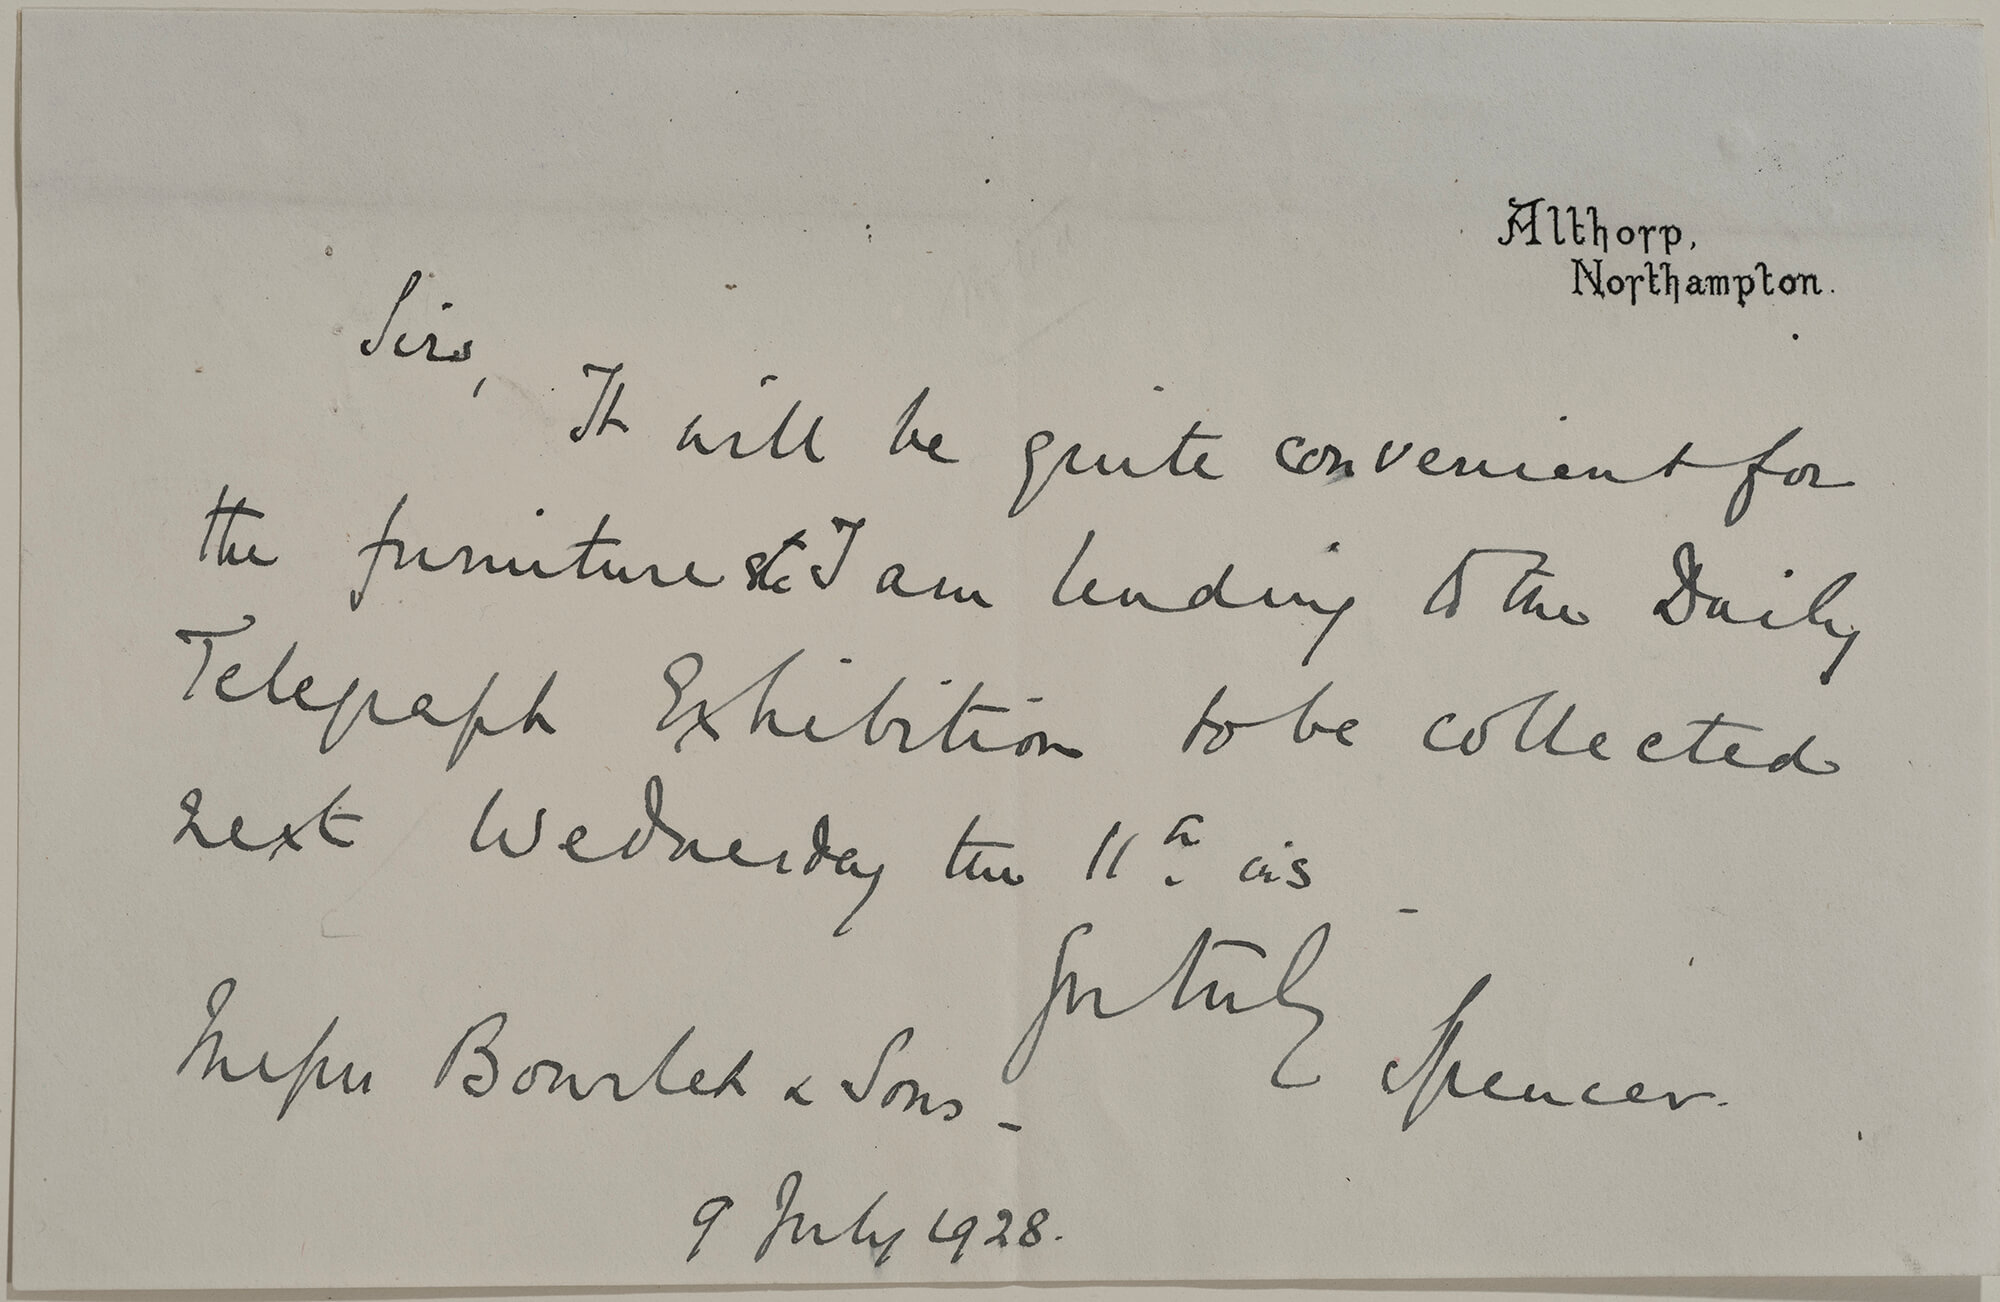 Althorp,
Northampton.
Sirs,
It will be quite convenient for
the furniture etc I am lending to the Daily
Telegraph Exhibition to be collected
next Wednesday the 11th
Yrs truly
Spencer.
Messrs Bourlet & Sons -
9 July 1928.